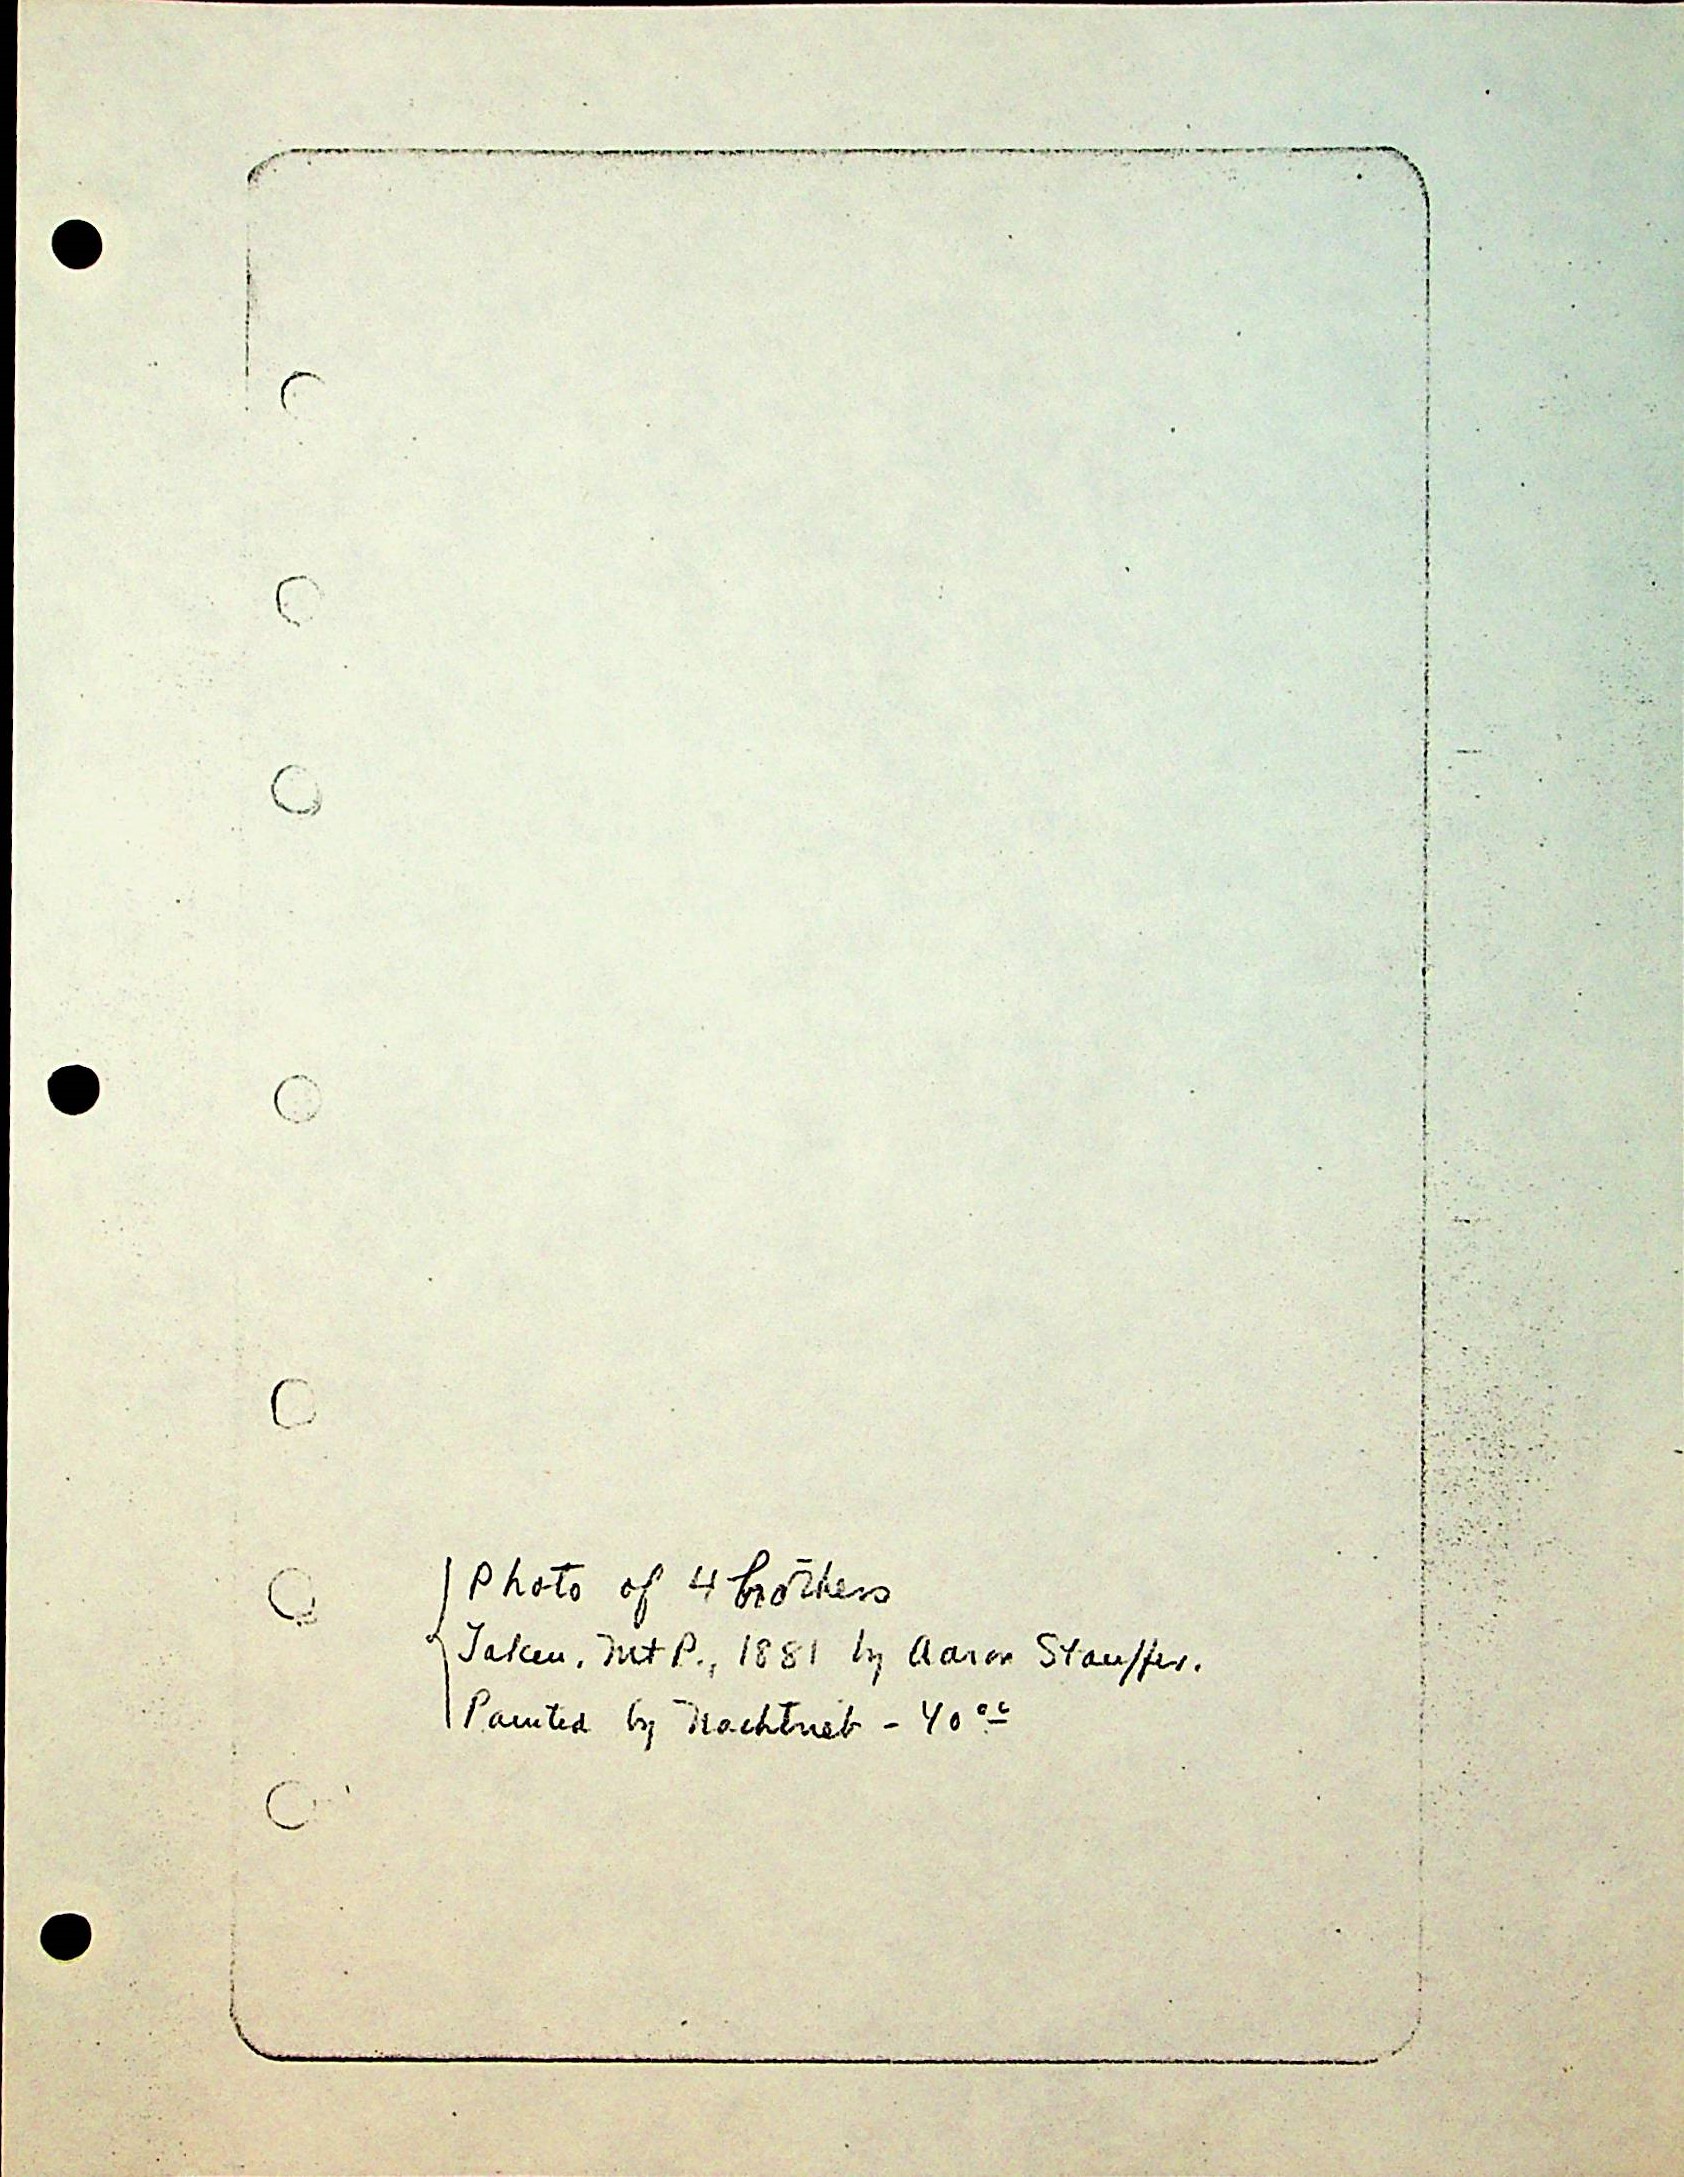 Photo of 4 brothers
Taken, Mt P., 1881 by Aaron Stauffer.
Painted by Nachtrieb - 40⁰⁰